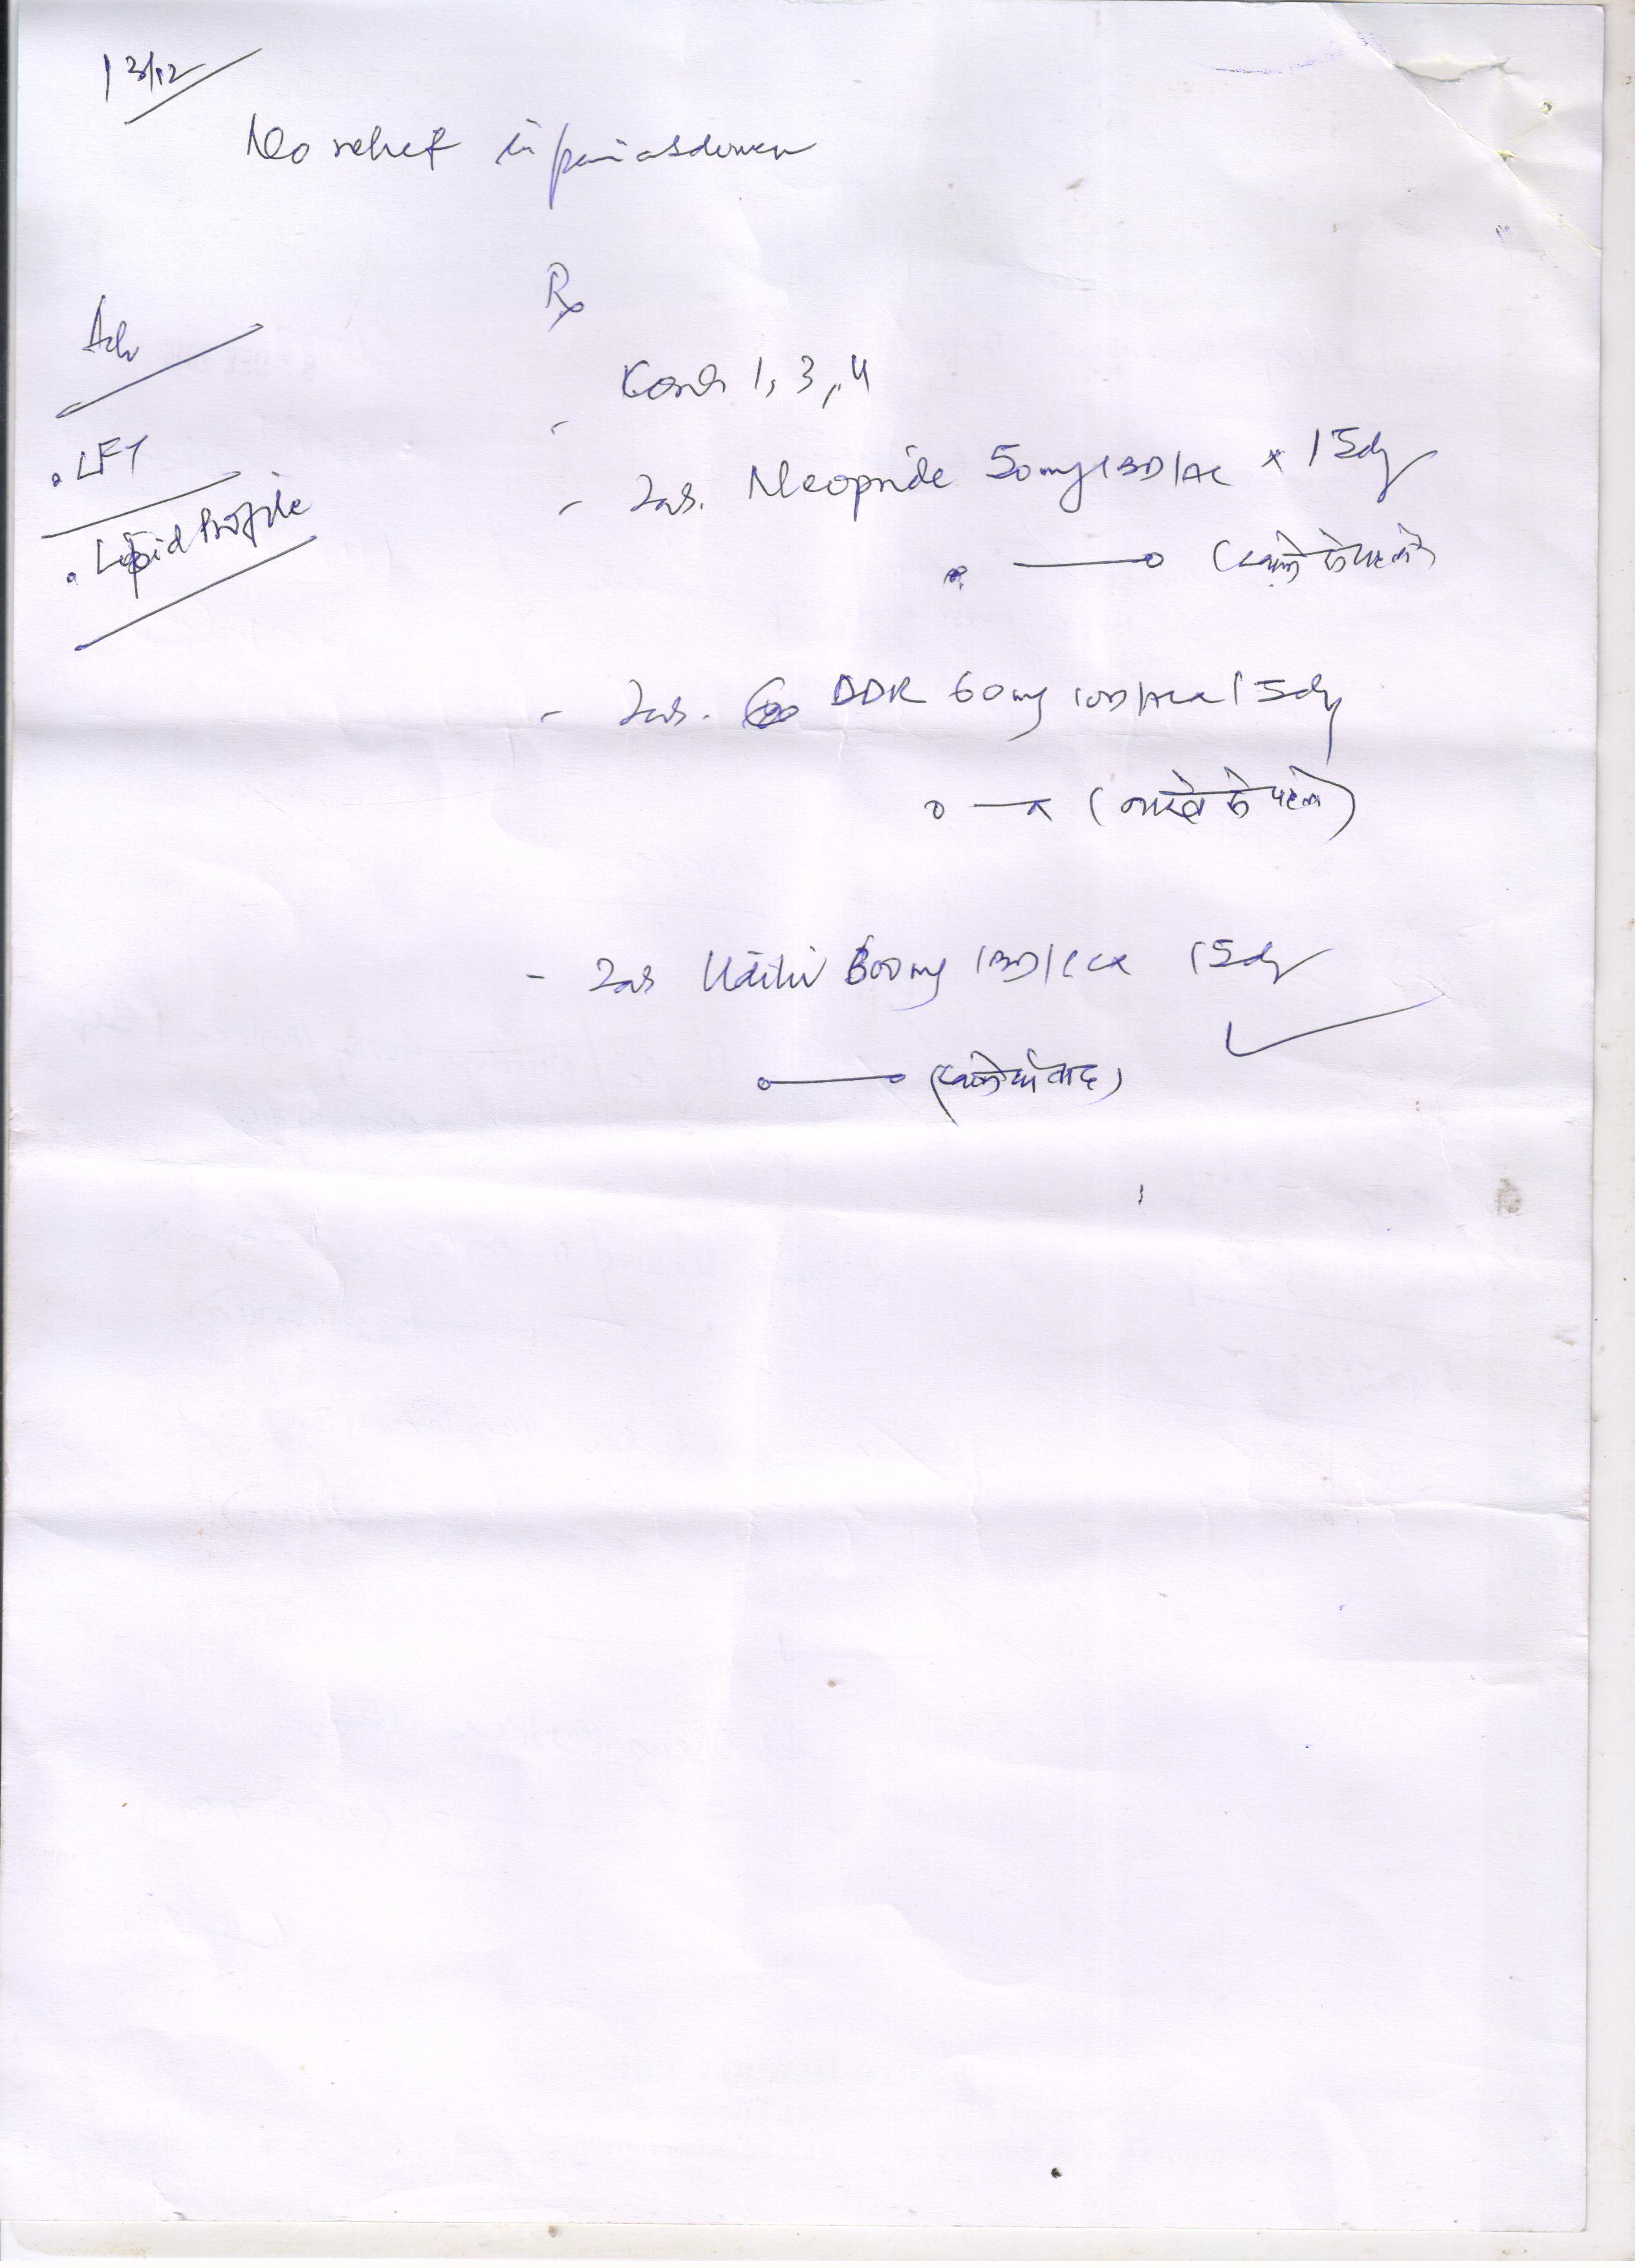 13/12
No relief in pain abdomen
Rx
Adv
- Cont 1, 3, 4
. LFT
- Tab. Neopride 50mg 1BD/AC x 15dy
. Lipid Profile
(खाने के पहले)
- Tab. DDR 60mg 1OD/AC x 15dy
(नाश्ते के पहले)
- Tab Udiliv 600mg 1BD/CC x 15dy
(खाने के बाद)